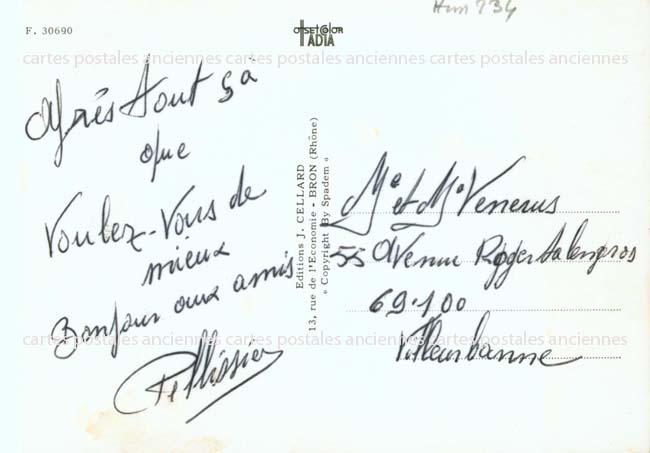 F. 30690
OFFSETCOLOR
IADIA
cartes postales anciennes cartes postales anciennes cartes postales anciennes
Après tout ça
que
Voulez-Vous de
mieux
Bonjour aux amis
Pellissier
Editions J. CELLARD
13, rue de l'Economie - BRON (Rhône)
« Copyright By Spadem »
Me et Me Venerus
55 Avenue Roger Salengros
69.100
Villeurbanne
cartes postales anciennes cartes postales anciennes cartes postales anciennes